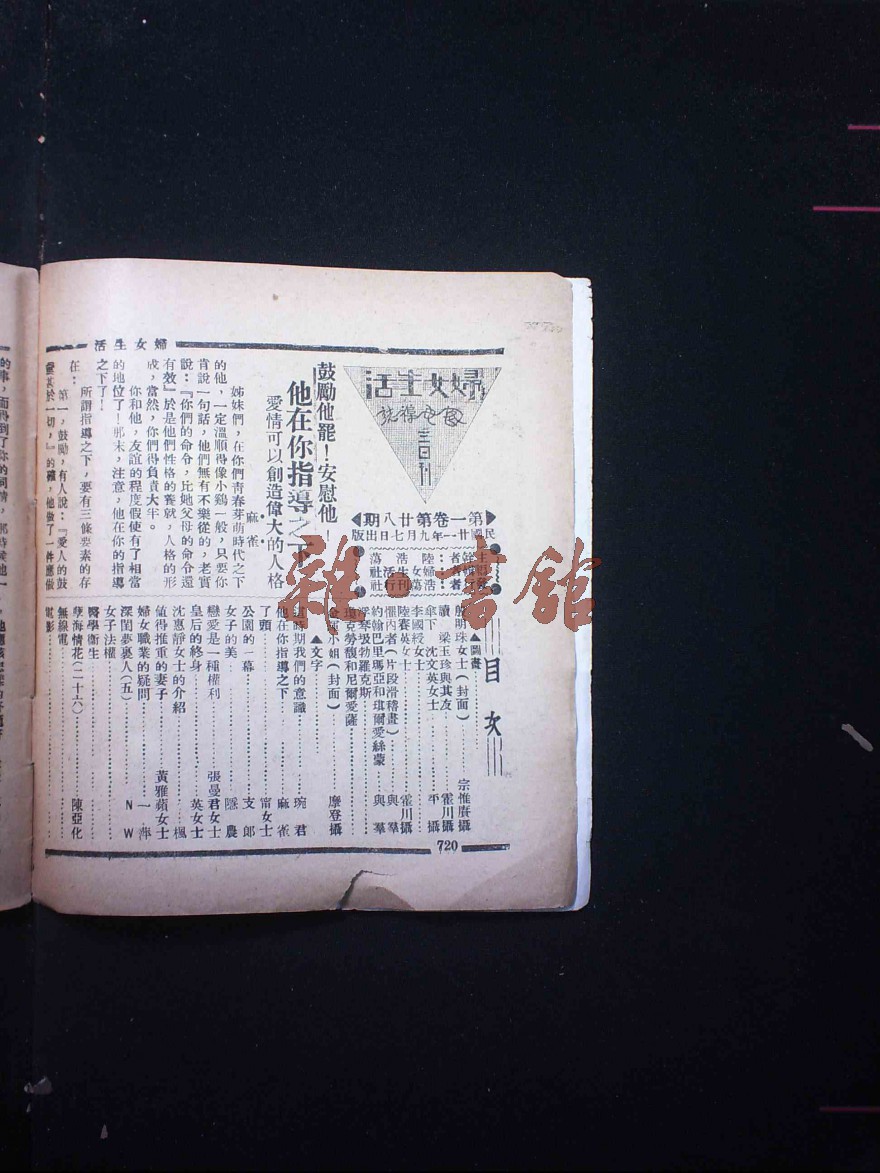 婦女生活
婦女生活
三日刊
第一卷第廿八期
民國廿一年九月七日出版
目次
▲圖畫
女士(封面) 宗惟賡攝
讀 梁玉珍與其友 霍川攝
傘下 沈文英女士 平攝
李國綬女士
陸賽英女士 霍川攝
懼內者(片段滑稽畫) 與羣
約翰巴里瑪亞和琪爾愛絲蒙 與羣
琴琴圾勃羅克斯
克勞馥和尼爾愛薩
小姐(封面) 摩登攝
▲文字
這時期我們的意識 琬君
他在你指導之下 麻雀
了頭 甯女士
公園的一幕 支郎
女子的美 隱農
戀愛是一種權利 張曼君女士
皇后的終身 英女士
沈惠靜女士的介紹 楓
値得推重的妻子 黃雅蘋女士
婦女職業的疑問 一萍
深閨夢裏人(五) NW
女子法權
醫學衞生
孽海情花(二十六) 陳亞化
無線電
電影
鼓勵他罷!安慰他!
他在你指導之下
愛情可以創造偉大的人格
麻雀
姊妹們,在你們靑春芽萌時代之下
的他,一定溫順得像小鷄一般,只要你
肯說一句話,他們無有不樂從的,老實
說:『你們的命令,比她父母的命令還
有效』於是他們性格的養就,人格的形
成,當然,你們得負責大半。
你和他,友誼的程度假使有了相當
的地位了!那末,注意,他在你的指導
之下了!
所謂指導之下,要有三條要素的存
在:
第一,鼓勵,有人說:『愛人的鼓
勵甚於一切,』的確,他做了一件應做
720
雜·書館